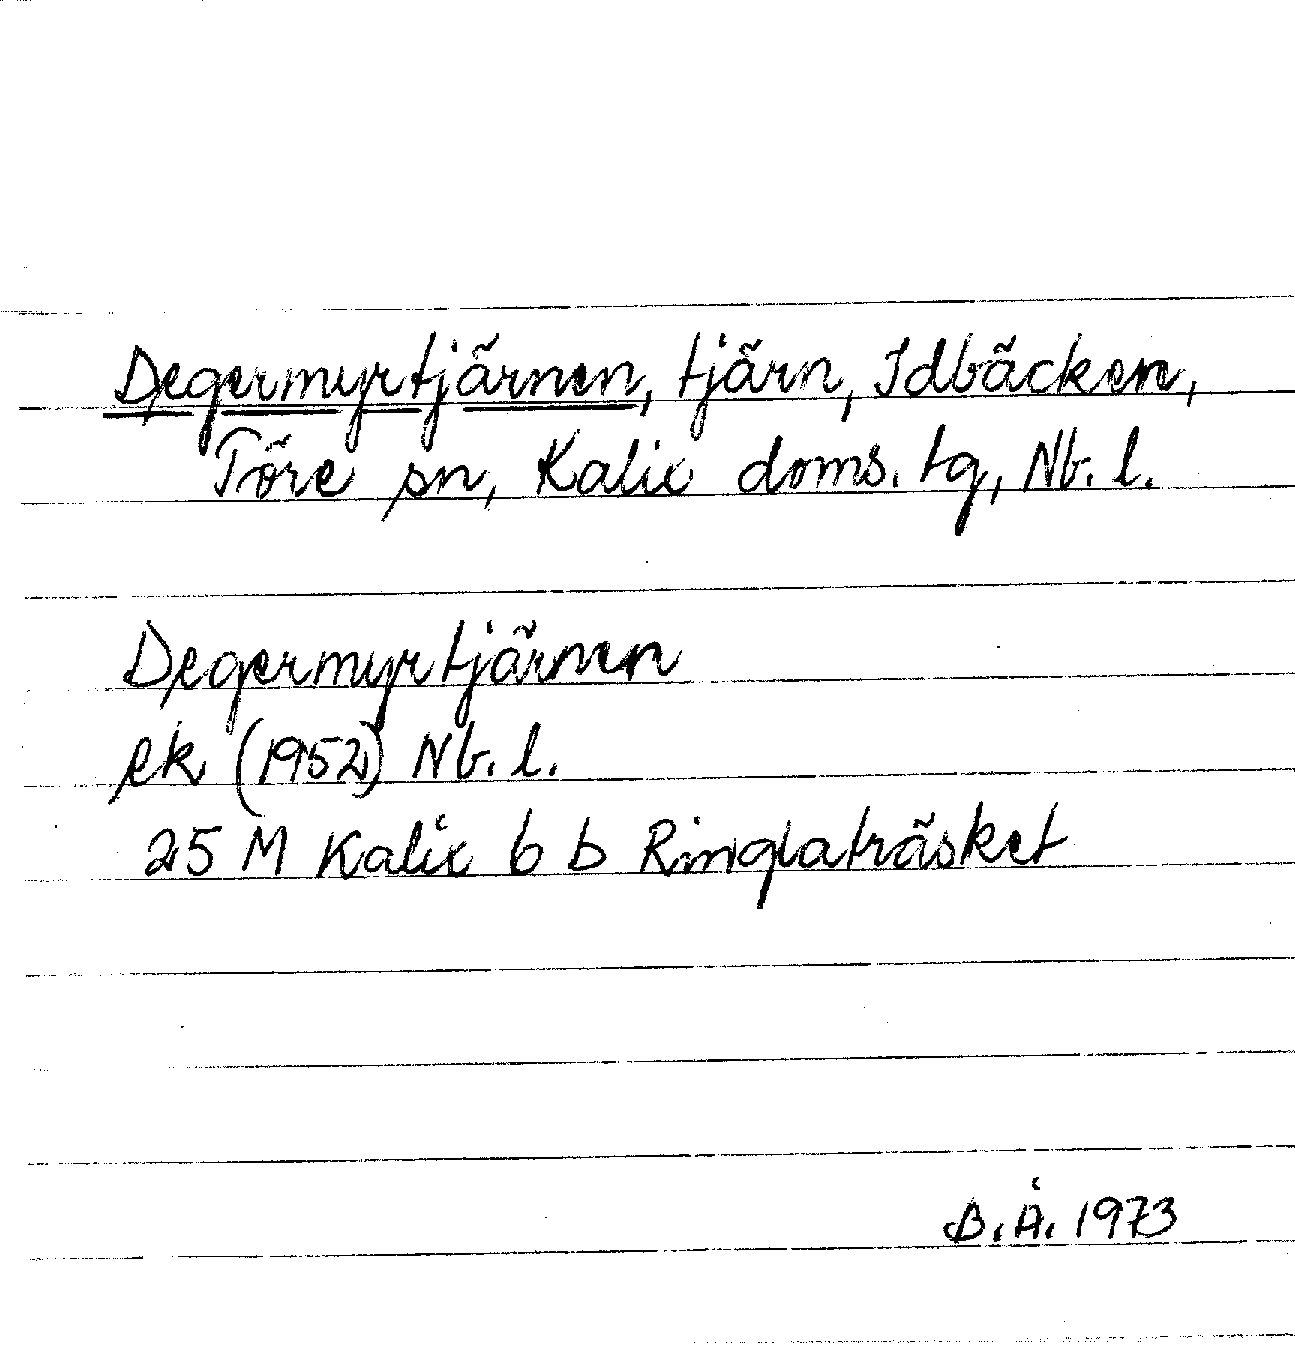 Degermyrtjärnen, tjärn, Idbäcken,
Töre sn, Kalix doms. tg, Nb. l.
Degermyrtjärnen
ek (1952) Nb. l.
25 M Kalix 6 b Ringlaträsket
B.Å. 1973